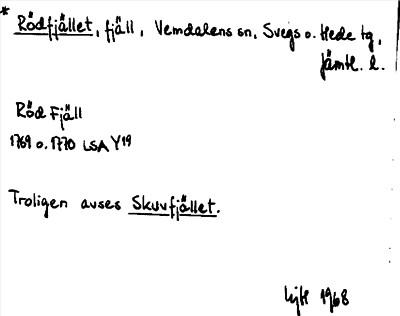 * Rödfjället, fjäll, Vemdalens sn, Svegs o. Hede tg,
Jämtl. l.
Röd Fjäll
1769 o. 1770 LSA Y19
Troligen avses Skuvfjället.
1968